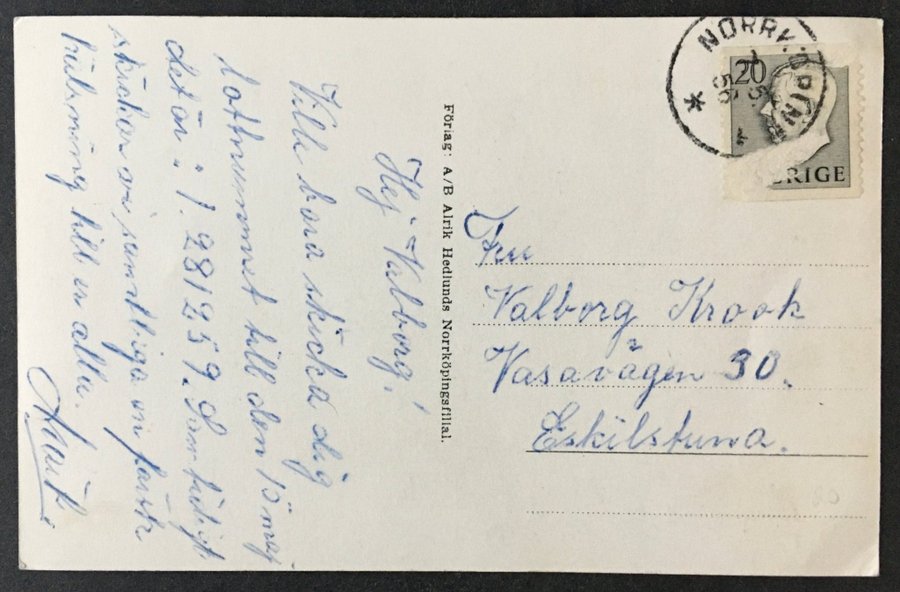 Hej Valborg!
Vill bara skicka dig
lottnumret till den 15 maj
det är: 1.281259. Samtidigt
skickar vi samtliga en
hälsning till er alla.
Förlag: A/B Alrik Hedlunds Norrköpingsfilial.
NORRKÖPING
20
SVERIGE
Fru
Valborg Krook
Vasavägen 30.
Eskilstuna.